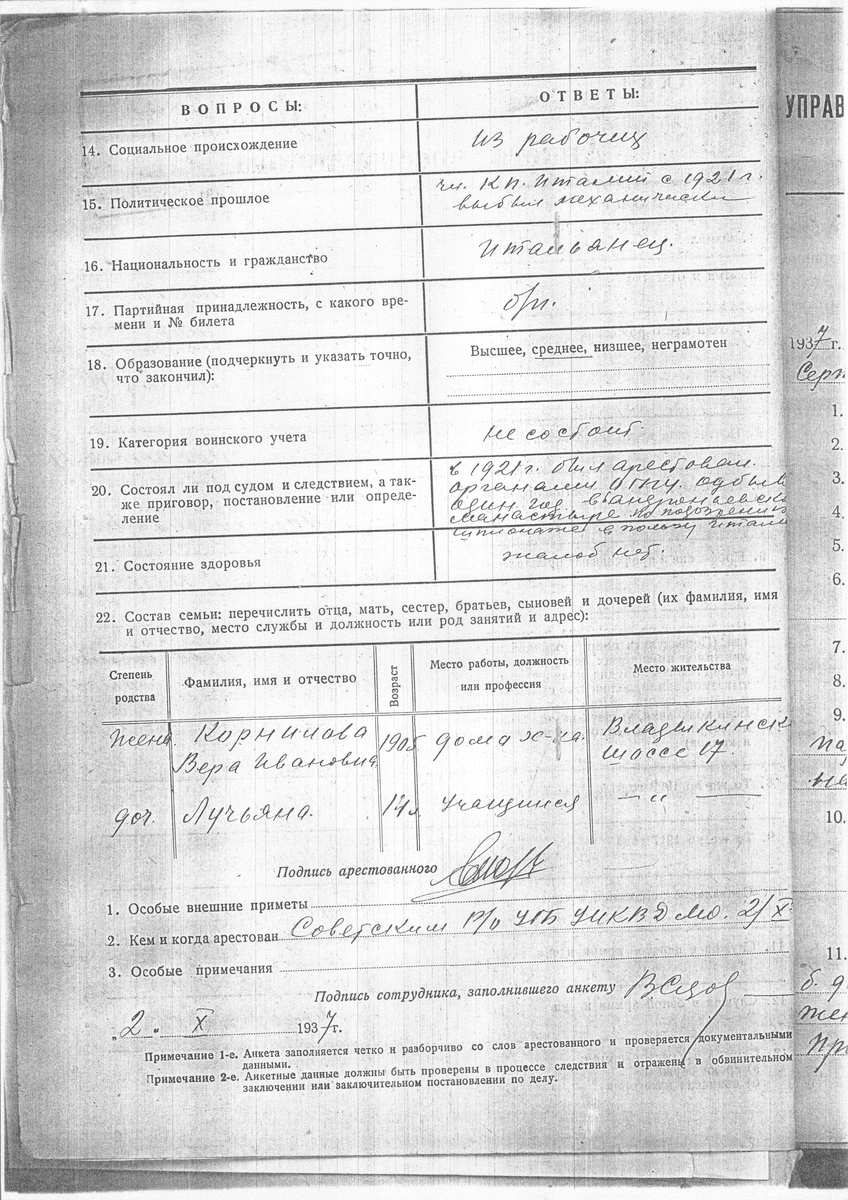 ВОПРОСЫ:
ОТВЕТЫ:
14. Социальное происхождение
из рабочих
15. Политическое прошлое
чл. КП. Италии с 1921 г.
выбыл механически
16. Национальность и гражданство
Итальянец.
17. Партийная принадлежность, с какого вре-
мени и № билета
б/п.
18. Образование (подчеркнуть и указать точно,
что закончил):
Высшее, среднее, низшее, неграмотен
19. Категория воинского учета
не состоит.
20. Состоял ли под судом и следствием, а так-
же приговор, постановление или опреде-
ление
в 1921 г. был арестован.
органами ОГПУ. отбыв
один год в Андроньевск
манастыре по подозрению
шпионаже в пользу Итали
21. Состояние здоровья
жалоб нет.
22. Состав семьи: перечислить отца, мать, сестер, братьев, сыновей и дочерей (их фамилия, имя
и отчество, место службы и должность или род занятий и адрес):
Степень
родства
Фамилия, имя и отчество
Возраст
Место работы, должность
или профессия
Место жительства
жена Корнилова 1905 дома х-ка. Владыкинск
Вера Ивановна шоссе 17.
доч. Лучьяна. 14 л. учащийся — „ —
Подпись арестованного
1. Особые внешние приметы
2. Кем и когда арестован Советским Р/о УГБ УНКВД МО. 2/X
3. Особые примечания
Подпись сотрудника, заполнившего анкету
„2" X 1937 г.
Примечание 1-е. Анкета заполняется четко и разборчиво со слов арестованного и проверяется документальными
данными.
Примечание 2-е. Анкетные данные должны быть проверены в процессе следствия и отражены в обвинительном
заключении или заключительном постановлении по делу.
УПРАВ
1937 г.
Серп
1.
2.
3.
4.
5.
6.
7.
8.
9.
па
10.
11.
б. д
жен
при